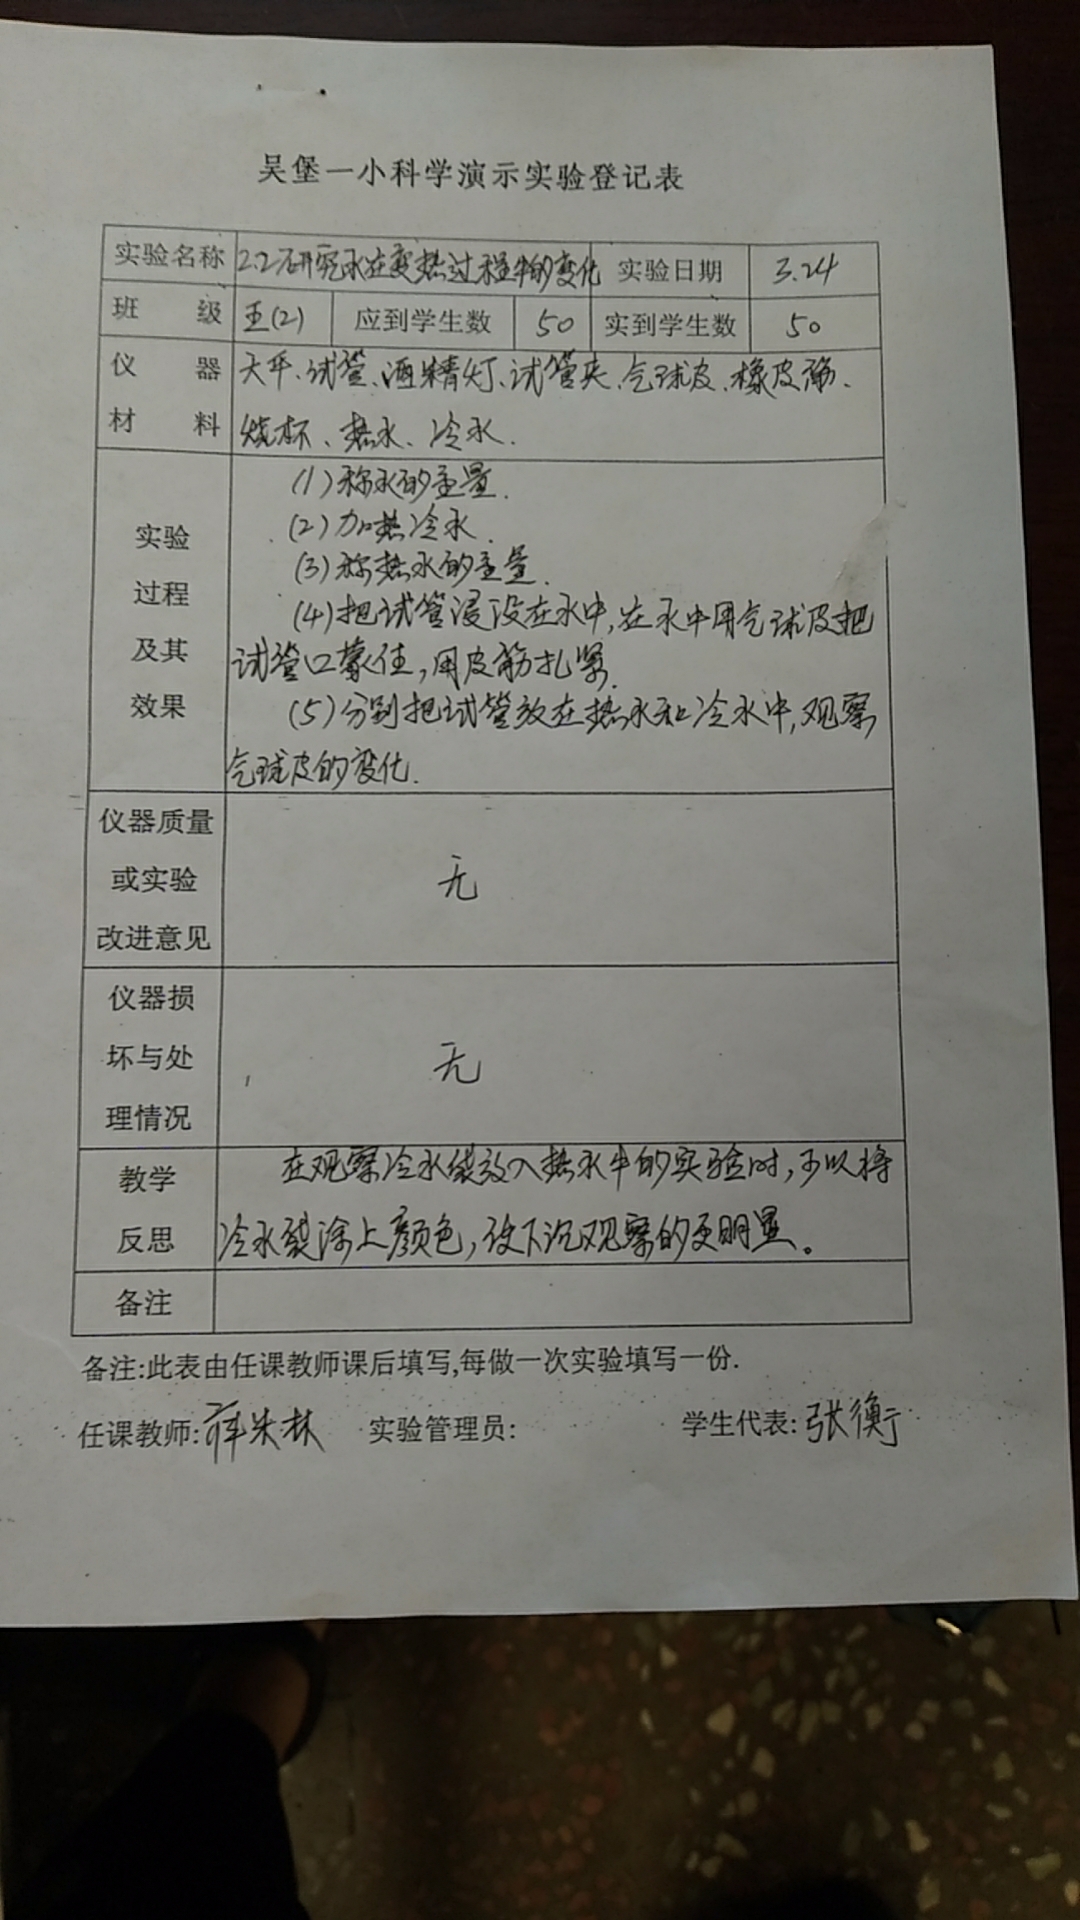 吴堡一小科学演示实验登记表
实验名称 2.2研究水在变热过程中的变化 实验日期 3.24
班级 五(2) 应到学生数 50 实到学生数 50
仪器 天平、试管、酒精灯、试管夹、气球皮、橡皮筋、
材料 烧杯、热水、冷水.
(1)称水的重量.
实验 (2)加热冷水.
(3)称热水的重量.
过程 (4)把试管浸没在水中,在水中用气球皮把
及其 试管口蒙住,用皮筋扎紧.
效果 (5)分别把试管放在热水和冷水中,观察
气球皮的变化.
仪器质量
或实验 无
改进意见
仪器损
坏与处 无
理情况
教学 在观察冷水袋放入热水中的实验时,可以将
反思 冷水袋涂上颜色,使下沉观察的更明显。
备注
备注:此表由任课教师课后填写,每做一次实验填写一份.
任课教师: 实验管理员: 学生代表:张衡